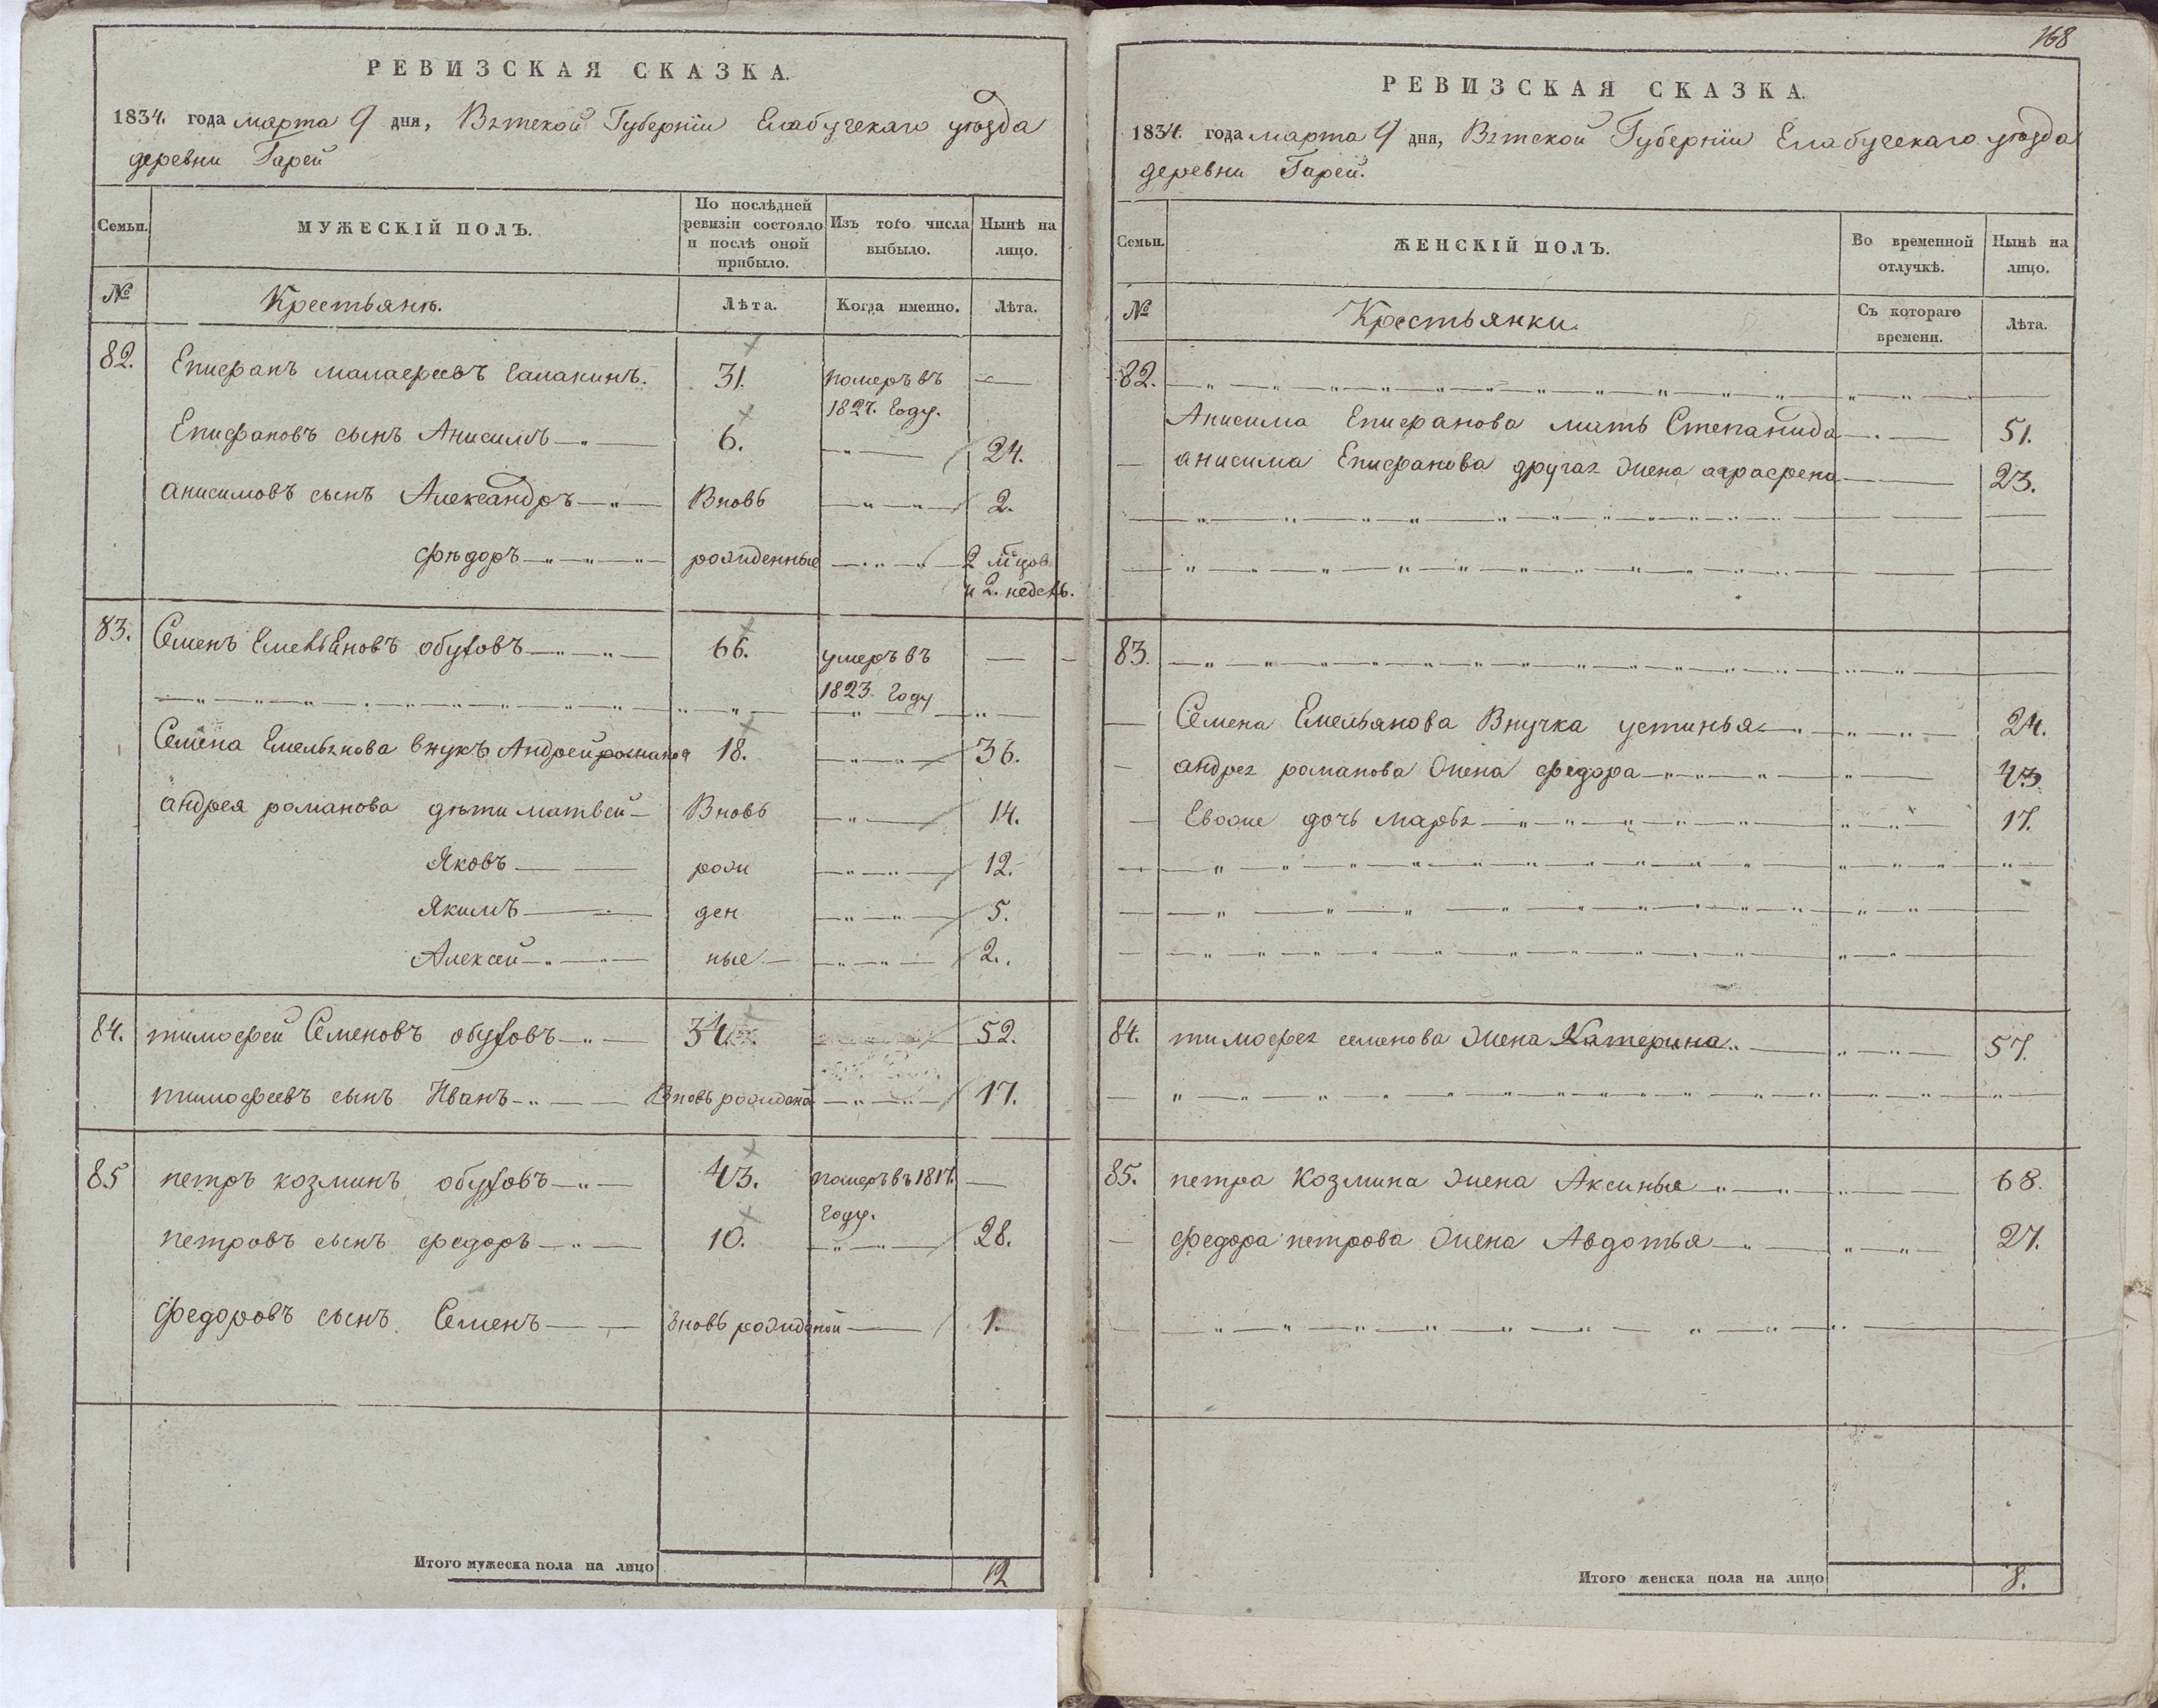 РЕВИЗСКАЯ СКАЗКА.
1834. года марта 9 дня, Вятской Губернїи Елабугскаго уѣзда
деревни Гарей
Семьи. МУЖЕСКІЙ ПОЛЪ. По послѣдней ревизіи состояло и послѣ оной прибыло. Изъ того числа выбыло. Нынѣ на лицо.
№ Крестьяне. Лѣта. Когда именно. Лѣта.
82. Епифанъ малафеевъ галанинъ. 31. померъ въ
1827. году.
Епифановъ сынъ Анисимъ 6. 24.
анисимовъ сынъ Александръ Вновь 2.
фѣдоръ рожденные 2 мцов
и 2. недель.
83. Семенъ Емельяновъ обуховъ 66. умеръ въ
1823. году
Семена Емельянова внукъ Андрей романов 18. 36.
андрея романова дѣти матвей Вновь 14.
Яковъ рож 12.
Якимъ ден 5.
Алексей ные 2.
84. тимофей Семеновъ обуховъ 34. 52.
тимофеевъ сынъ Иванъ Вновь рожденой 17.
85 петръ козминъ обуховъ 43. померъ въ 1817.
году.
петровъ сынъ федоръ 10. 28.
федоровъ сынъ Семенъ вновь рожденой 1.
Итого мужеска пола на лицо 12
168
РЕВИЗСКАЯ СКАЗКА.
1834. года марта 9 дня, Вятской Губернїи Елабугскаго уѣзда
деревни Гарей.
Семьи. ЖЕНСКІЙ ПОЛЪ. Во временной отлучкѣ. Нынѣ на лицо.
№ Крестьянки. Съ котораго времени. Лѣта.
82.
Анисима Епифанова мать Степанида 51.
анисима Епифанова другая жена аграфена 23.
83.
Семена Емельянова Внучка устинья 24.
андрея романова жена федора 43.
Евоже дочь марья 17.
84. тимофея семенова жена Катерина 57.
85. петра Козмина жена Аксинья 68.
федора петрова жена Авдотья 27.
Итого женска пола на лицо 8.